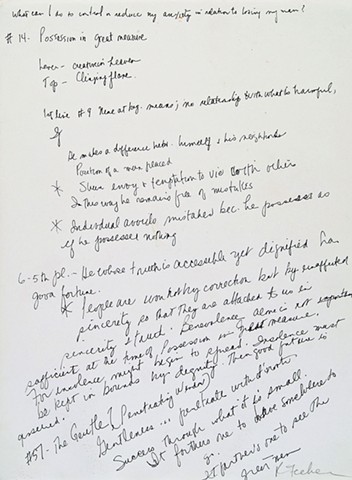 What can I do to control or reduce my anxiety in relation to losing my mom?
#14. Possession in Great Measure
Lower - creative: heaven
Top - Clinging flame.
1st line # 9 Nine at beg. means; no relationship with what is harmful,
He makes a difference betw. himself & his neighbor
Position of a man placed
* Shun envy & temptation to vie with others
In this way he remains free of mistakes
* Individual avoids mistakes bec. he possesses as
if he possessed nothing
6-5th pl. - He whose truth is accessible yet dignified has
good fortune.
* People are won not by correction but by unaffected
sincerity so that they are attached to us in
sincerity & trust. Benevolence alone is not
sufficient at the time of Possession in Great measure.
For insolence might begin to spread. Insolence must
be kept in bounds by dignity. Then good fortune is
assured.
#57. The Gentle (Penetrating Wind)
Gentleness... penetrate
Success through what is small.
It furthers one to have somewhere to
go.
It furthers one to see the
great man
K Feehan